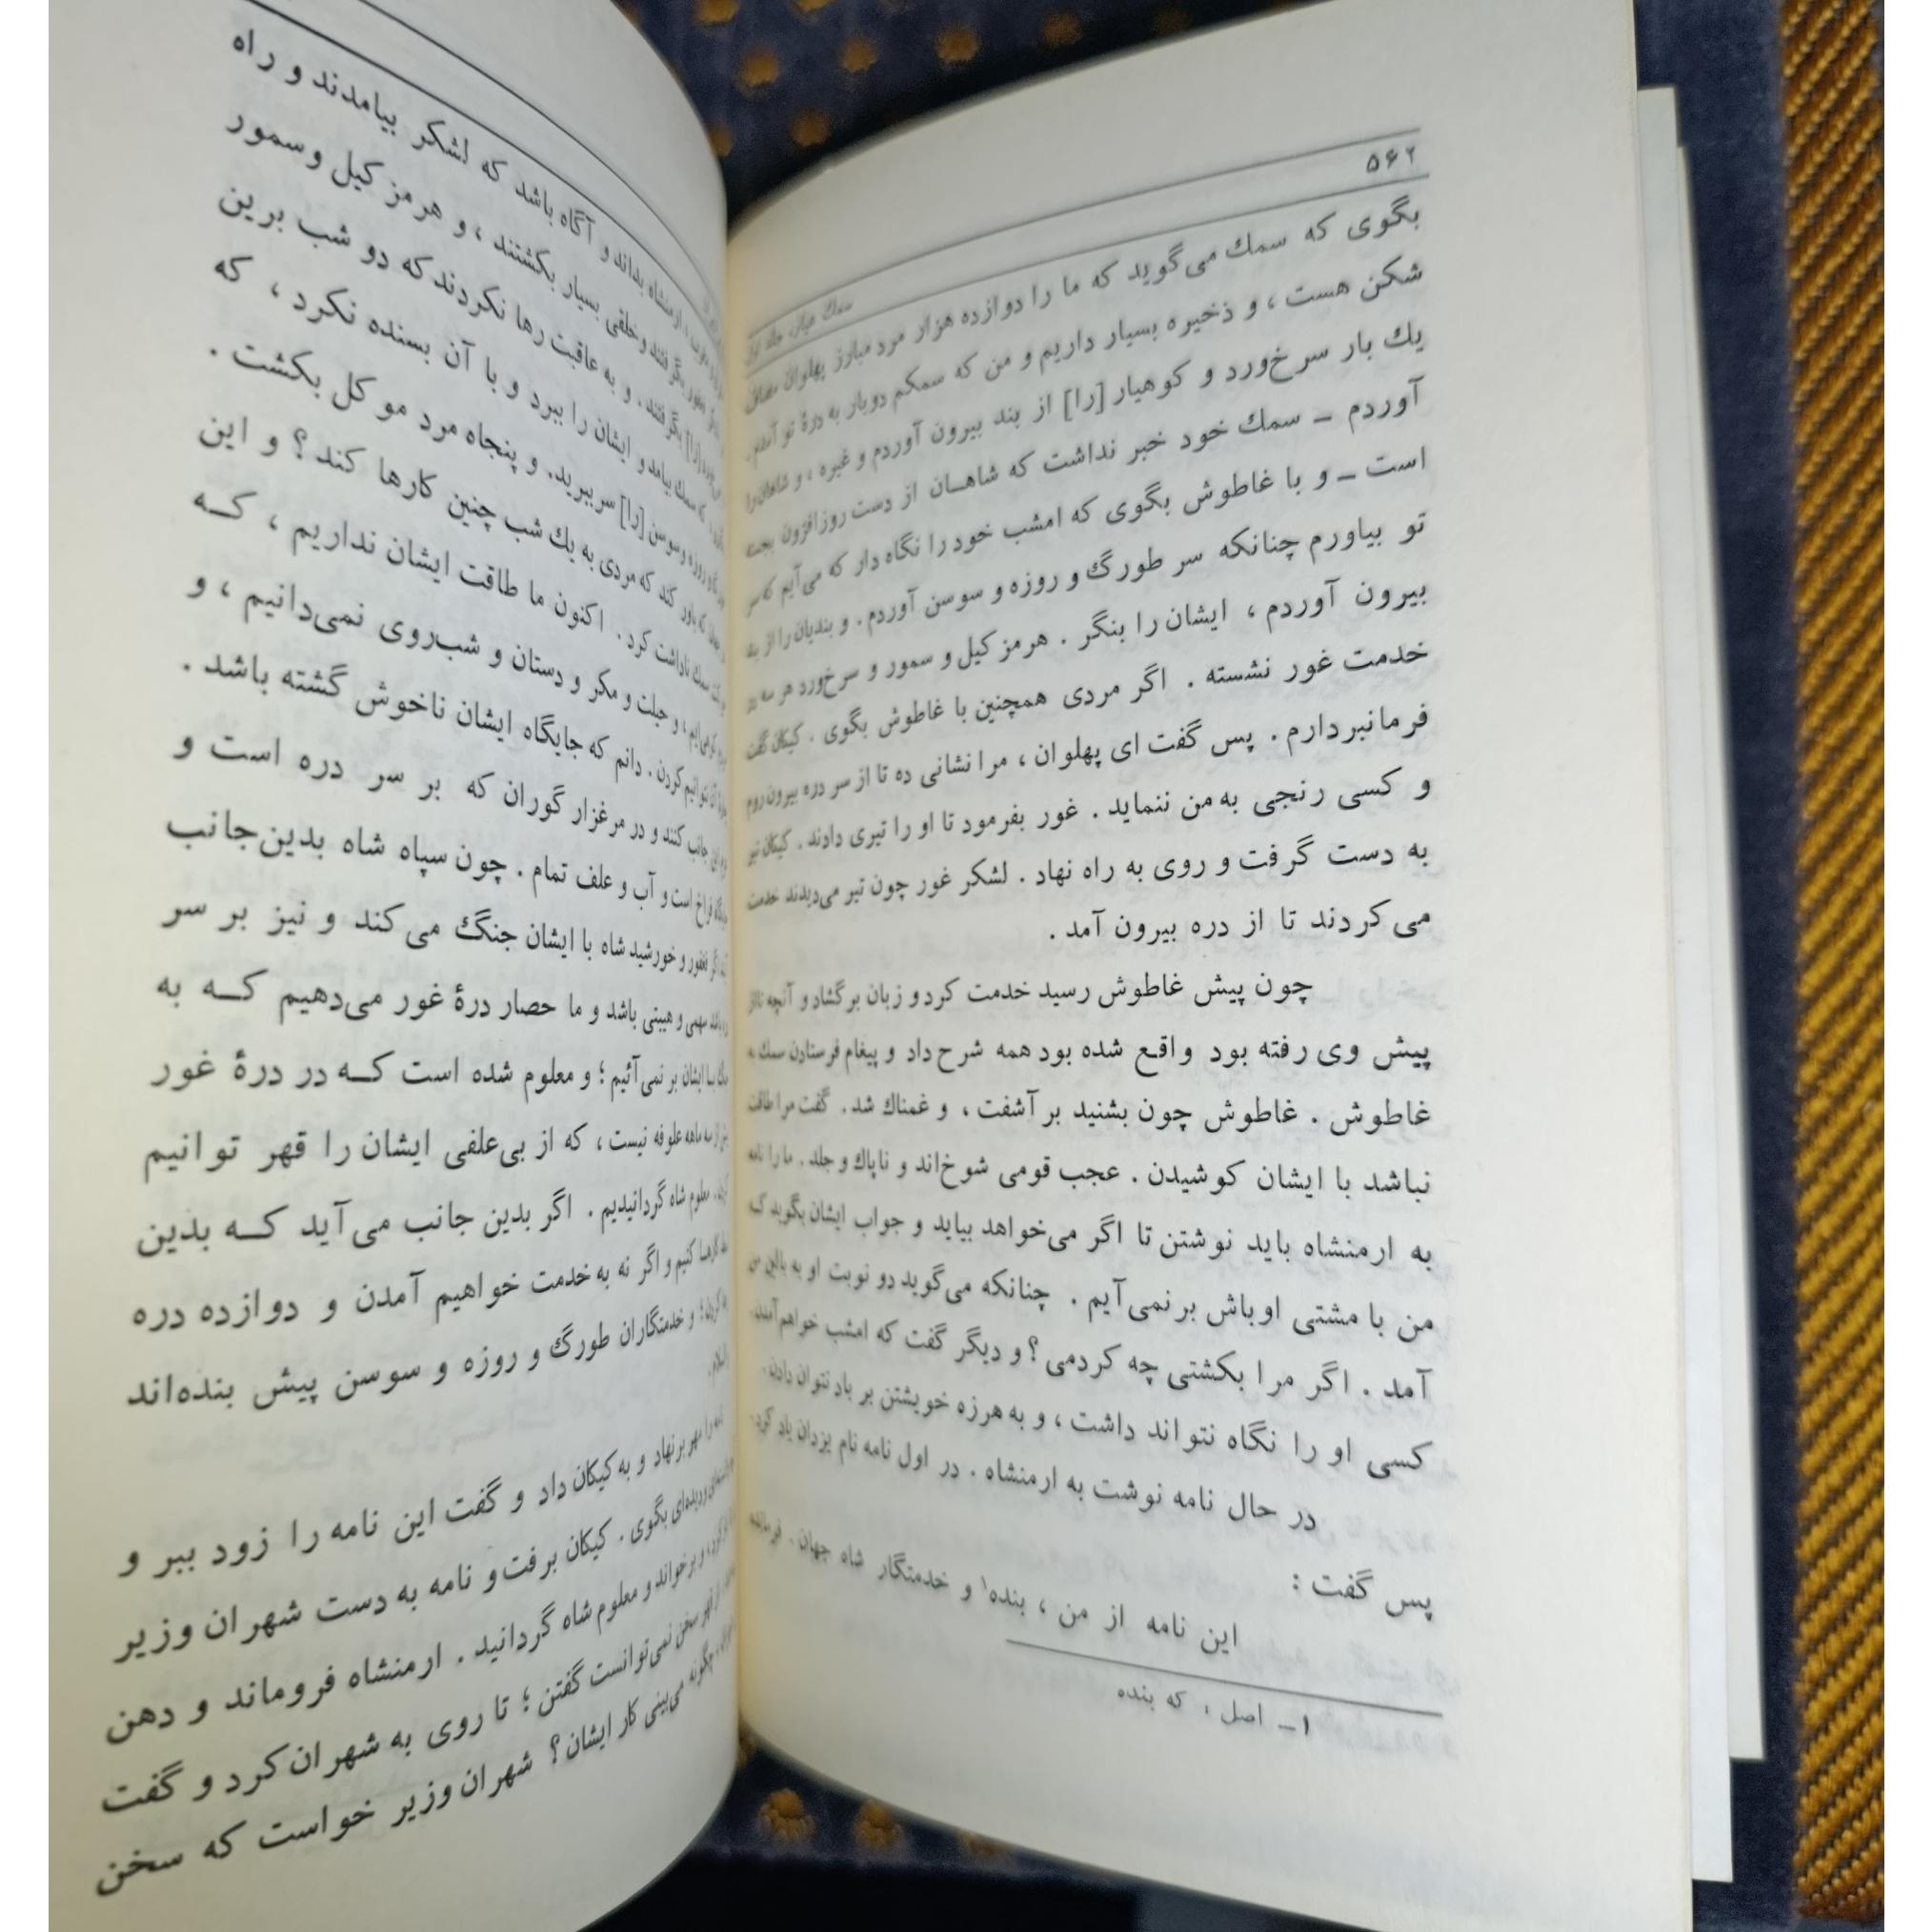 ۵۶۲
سمك عیار، جلد اول
بگوی که سمك می‌گوید که ما را دوازده هزار مرد مبارز پهلوان مصاف
شکن هست ، و ذخیره بسیار داریم و من که سمکم دوبار به درهٔ تو آمدم .
یك بار سرخ‌ورد و کوهیار [را] از بند بیرون آوردم و غیره ، و شاهان را
آوردم – سمك خود خبر نداشت که شاهــان از دست روزافزون بجسته
است – و با غاطوش بگوی که امشب خود را نگاه دار که می‌آیم که سر
تو بیاورم چنانکه سر طورگ و روزه و سوسن آوردم . و بندیان را از بند
بیرون آوردم ، ایشان را بنگر . هرمز کیل و سمور و سرخ‌ورد هر سه در
خدمت غور نشسته . اگر مردی همچنین با غاطوش بگوی . کیکان گفت
فرمانبردارم . پس گفت ای پهلوان ، مرا نشانی ده تا از سر دره بیرون روم
و کسی رنجی به من ننماید . غور بفرمود تا او را تیری دادند . کیکان تیر
به دست گرفت و روی به راه نهاد . لشکر غور چون تیر می‌دیدند خدمت
می‌کردند تا از دره بیرون آمد .
چون پیش غاطوش رسید خدمت کرد و زبان برگشاد و آنچه تا از
پیش وی رفته بود واقع شده بود همه شرح داد و پیغام فرستادن سمك به
غاطوش . غاطوش چون بشنید برآشفت ، و غمناك شد . گفت مرا طاقت
نباشد با ایشان کوشیدن . عجب قومی شوخ‌اند و ناپاك و جلد . ما را نامه
به ارمنشاه باید نوشتن تا اگر می‌خواهد بیاید و جواب ایشان بگوید که
من با مشتی اوباش برنمی‌آیم . چنانکه می‌گوید دو نوبت او به بالین من
آمد . اگر مرا بکشتی چه کردمی ؟ و دیگر گفت که امشب خواهم آمدن.
کسی او را نگاه نتواند داشت ، و به هرزه خویشتن بر باد نتوان دادن.
در حال نامه نوشت به ارمنشاه . در اول نامه نام یزدان یاد کرد.
پس گفت :
این نامه از من ، بنده۱ و خدمتگار شاه جهان .
۱ – اصل ، که بنده
ارمنشاه بداند و آگاه باشد که لشکر بیامدند و راه
بگرفتند و خلقی بسیار بکشتند ، و هرمز کیل و سمور
[را] بگرفتند . و به عاقبت رها نکردند که دو شب برین
که سمك بیامد و ایشان را ببرد و با آن بسنده نکرد ، که
و روزه و سوسن [را] سر ببرید. و پنجاه مرد موکل بکشت .
که باور کند که مردی به یك شب چنین کارها کند ؟ و این
سمك ناداشت کرد . اکنون ما طاقت ایشان نداریم ، کــه
و حیلت و مکر و دستان و شب‌روی نمی‌دانیم ، و
نتوانیم کردن . دانم که جایگاه ایشان ناخوش گشته باشد .
جانب کنند و در مرغزار گوران که بر سر دره است و
فراخ است و آب و علف تمام . چون سپاه شاه بدین‌جانب
فغفور و خورشیدشاه با ایشان جنگ می‌کند و نیز بر سر
سهمی و هیبتی باشد و ما حصار درهٔ غور می‌دهیم کــه به
ایشان بر نمی‌آئیم ؛ و معلوم شده است کــه در درهٔ غور
سه ماهه علوفه نیست ، که از بی‌علفی ایشان را قهر توانیم
معلوم شاه گردانیدیم . اگر بدین جانب می‌آید کــه بدین
کارها کنیم و اگر نه به خدمت خواهیم آمدن و دوازده دره
و خدمتگاران طورگ و روزه و سوسن پیش بنده‌اند
والسلام .
مهر برنهاد و به کیکان داد و گفت این نامه را زود ببر و
بگوی . کیکان برفت و نامه به دست شهران وزیر
و برخواند و معلوم شاه گردانید . ارمنشاه فروماند و دهن
سخن نمی‌توانست گفتن ؛ تا روی به شهران کرد و گفت
چگونه می‌بینی کار ایشان ؟ شهران وزیر خواست که سخن